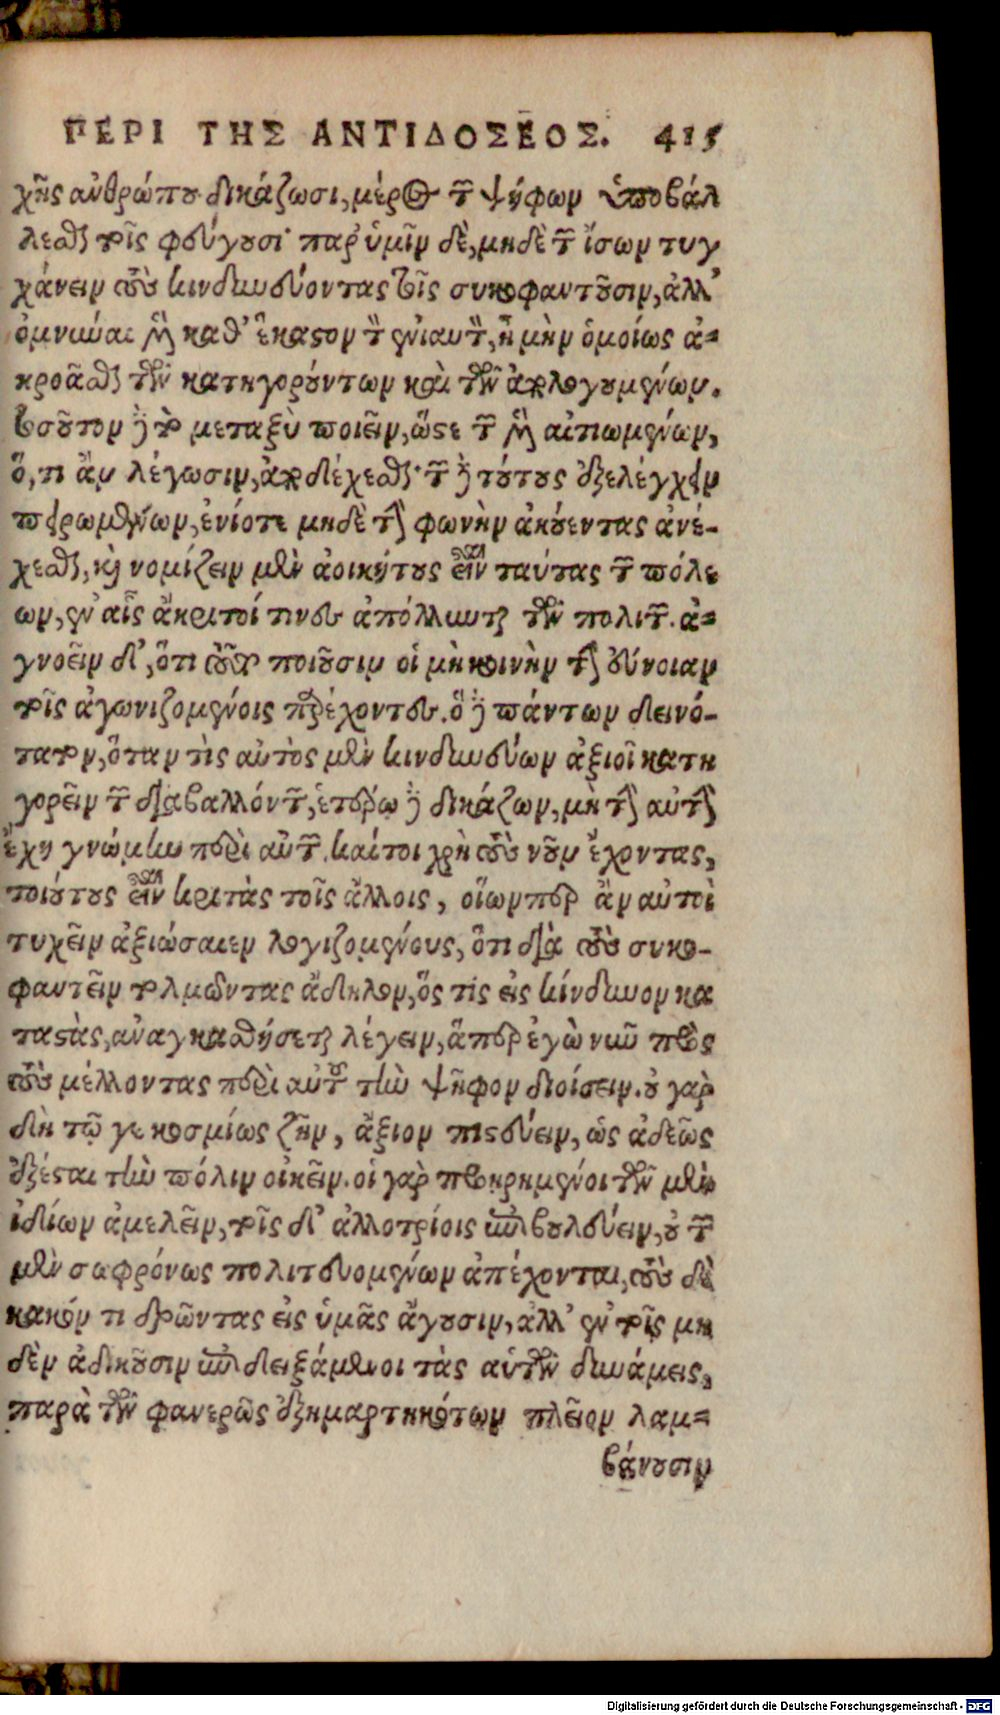 ΠΕΡΙ ΤΗΣ ΑΝΤΙΔΟΣΕΟΣ. 415
χῆς ἀνθρώπου δικάζωσι, μέρος τῶν ψήφων ὑποβάλ
λεσθαι τοῖς φεύγουσι· παρ' ὑμῖν δὲ, μηδὲ τῶν ἴσων τυγ
χάνειν τοὺς κινδυνεύοντας τοῖς συκοφαντοῦσιν, ἀλλ'
ὀμνύναι μὲν καθ' ἕκαστον τὸν ἐνιαυτὸν, ἦ μὴν ὁμοίως ἀ-
κροᾶσθαι τῶν κατηγορούντων καὶ τῶν ἀπολογουμένων.
τοσοῦτον δὲ τὸ μεταξὺ ποιεῖν, ὥστε τῶν μὲν αἰτιωμένων,
ὅ, τι ἂν λέγωσιν, ἀποδέχεσθαι· τῶν δὲ τούτους ἐξελέγχειν
πειρωμένων, ἐνίοτε μηδὲ τὴν φωνὴν ἀκούεντας ἀνέ-
χεσθαι, καὶ νομίζειν μὲν ἀοικήτους εἶναι ταύτας τῶν πόλε
ων, ἐν αἷς ἄκριτοί τινες ἀπόλλυνται τῶν πολιτῶν. ἀ-
γνοεῖν δ', ὅτι τοῦτο ποιοῦσιν οἱ μὴ κοινὴν τὴν εὔνοιαν
τοῖς ἀγωνιζομένοις παρέχοντες. ὃ δὲ πάντων δεινό-
τατον, ὅταν τὶς αὐτὸς μὲν κινδυνεύων ἀξιοῖ κατη
γορεῖν τῶν διαβαλλόντων, ἑτέρῳ δὲ δικάζων, μὴ τὴν αὐτὴν
ἔχῃ γνώμην περὶ αὐτῶν. καίτοι χρὴ τοὺς νοῦν ἔχοντας,
τοιούτους εἶναι κριτὰς τοῖς ἄλλοις, οἵωνπερ ἂν αὐτοὶ
τυχεῖν ἀξιώσαιεν λογιζομένους, ὅτι διὰ τοὺς συκο-
φαντεῖν τολμῶντας ἄδηλον, ὅς τὶς εἰς κίνδυνον κα
ταστὰς, ἀναγκασθήσεται λέγειν, ἅπερ ἐγὼ νῦν πρὸς
τοὺς μέλλοντας περὶ αὐτοῦ τὴν ψῆφον διοίσειν. οὐ γὰρ
δὴ τῷ γε κοσμίως ζῆν, ἄξιον πιστεύειν, ὡς ἀδεῶς
ἐξέσται τὴν πόλιν οἰκεῖν. οἱ γὰρ προῃρημένοι τῶν μὲν
ἰδίων ἀμελεῖν, τοῖς δ' ἀλλοτρίοις ἐπιβουλεύειν, οὐ τῶν
μὲν σωφρόνως πολιτευομένων ἀπέχονται, τοὺς δὲ
κακόν τι δρῶντας εἰς ὑμᾶς ἄγουσιν, ἀλλ' ἐν τοῖς μη
δὲν ἀδικοῦσιν ἐπιδειξάμενοι τὰς αὑτῶν δυνάμεις,
παρὰ τῶν φανερῶς ἐξημαρτηκότων πλεῖον λαμ-
βάνουσιν
Digitalisierung gefördert durch die Deutsche Forschungsgemeinschaft - DFG